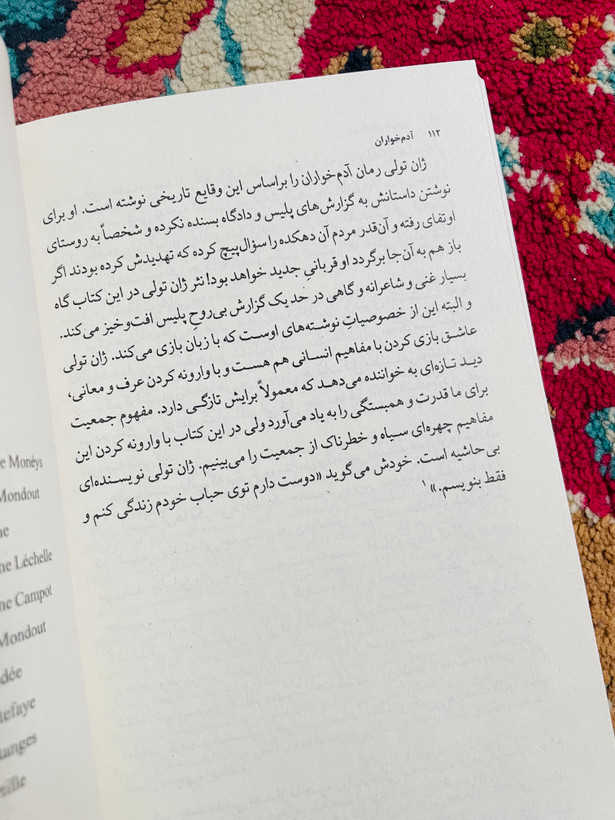 ۱۱۲ آدم‌خواران
ژان تولی رمان آدم‌خواران را براساس این وقایع تاریخی نوشته است. او برای
نوشتن داستانش به گزارش‌های پلیس و دادگاه بسنده نکرده و شخصاً به روستای
اوتفای رفته و آن‌قدر مردم آن دهکده را سؤال‌پیچ کرده که تهدیدش کرده بودند اگر
باز هم به آن‌جا برگردد او قربانیِ جدید خواهد بود! نثر ژان تولی در این کتاب گاه
بسیار غنی و شاعرانه و گاهی در حد یک گزارش بی‌روحِ پلیس افت‌وخیز می‌کند.
و البته این از خصوصیاتِ نوشته‌های اوست که با زبان بازی می‌کند. ژان تولی
عاشق بازی کردن با مفاهیم انسانی هم هست و با وارونه کردن عرف و معانی،
دید تازه‌ای به خواننده می‌دهد که معمولاً برایش تازگی دارد. مفهوم جمعیت
برای ما قدرت و همبستگی را به یاد می‌آورد ولی در این کتاب با وارونه کردن این
مفاهیم چهره‌ای سیاه و خطرناک از جمعیت را می‌بینیم. ژان تولی نویسنده‌ای
بی‌حاشیه است. خودش می‌گوید «دوست دارم توی حباب خودم زندگی کنم و
فقط بنویسم.»۱
e Monéys
Mondout
ne
ne Léchelle
ne Campot
Mondout
dée
tefaye